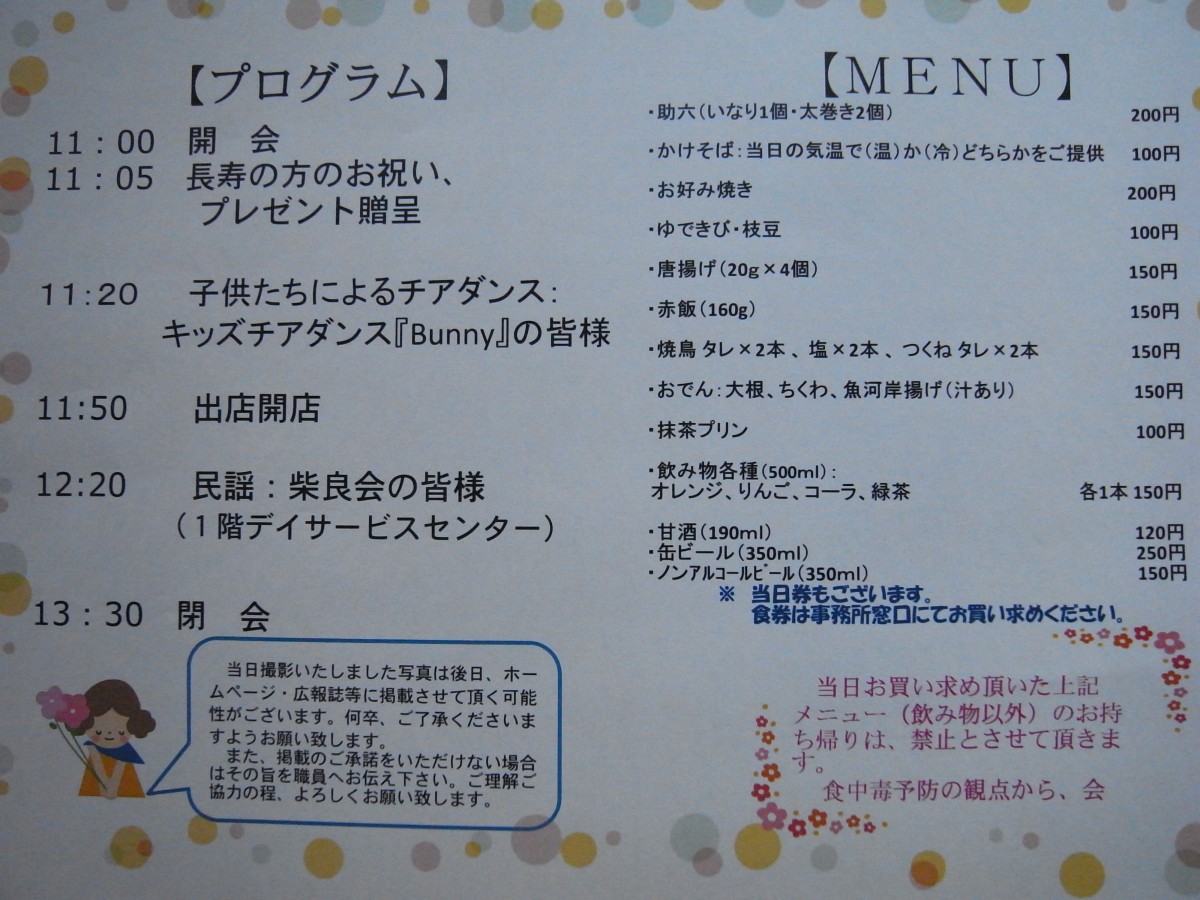 【プログラム】
11：00　開　会
11：05　長寿の方のお祝い、
プレゼント贈呈
11:20　子供たちによるチアダンス：
キッズチアダンス『Bunny』の皆様
11:50　出店開店
12:20　民謡：柴良会の皆様
（１階デイサービスセンター）
13：30　閉　会
当日撮影いたしました写真は後日、ホー
ムページ・広報誌等に掲載させて頂く可能
性がございます。何卒、ご了承くださいま
すようお願い致します。
また、掲載のご承諾をいただけない場合
はその旨を職員へお伝え下さい。ご理解ご
協力の程、よろしくお願い致します。
【MENU】
・助六（いなり1個・太巻き2個） 200円
・かけそば：当日の気温で（温）か（冷）どちらかをご提供 100円
・お好み焼き 200円
・ゆできび・枝豆 100円
・唐揚げ（20g×4個） 150円
・赤飯（160g） 150円
・焼鳥 タレ×2本 、塩×2本 、つくね タレ×2本 150円
・おでん：大根、ちくわ、魚河岸揚げ（汁あり） 150円
・抹茶プリン 100円
・飲み物各種（500ml）：
オレンジ、りんご、コーラ、緑茶 各1本 150円
・甘酒（190ml） 120円
・缶ビール（350ml） 250円
・ノンアルコールビール（350ml） 150円
※　当日券もございます。
食券は事務所窓口にてお買い求めください。
当日お買い求め頂いた上記
メニュー（飲み物以外）のお持
ち帰りは、禁止とさせて頂きま
す。
食中毒予防の観点から、会